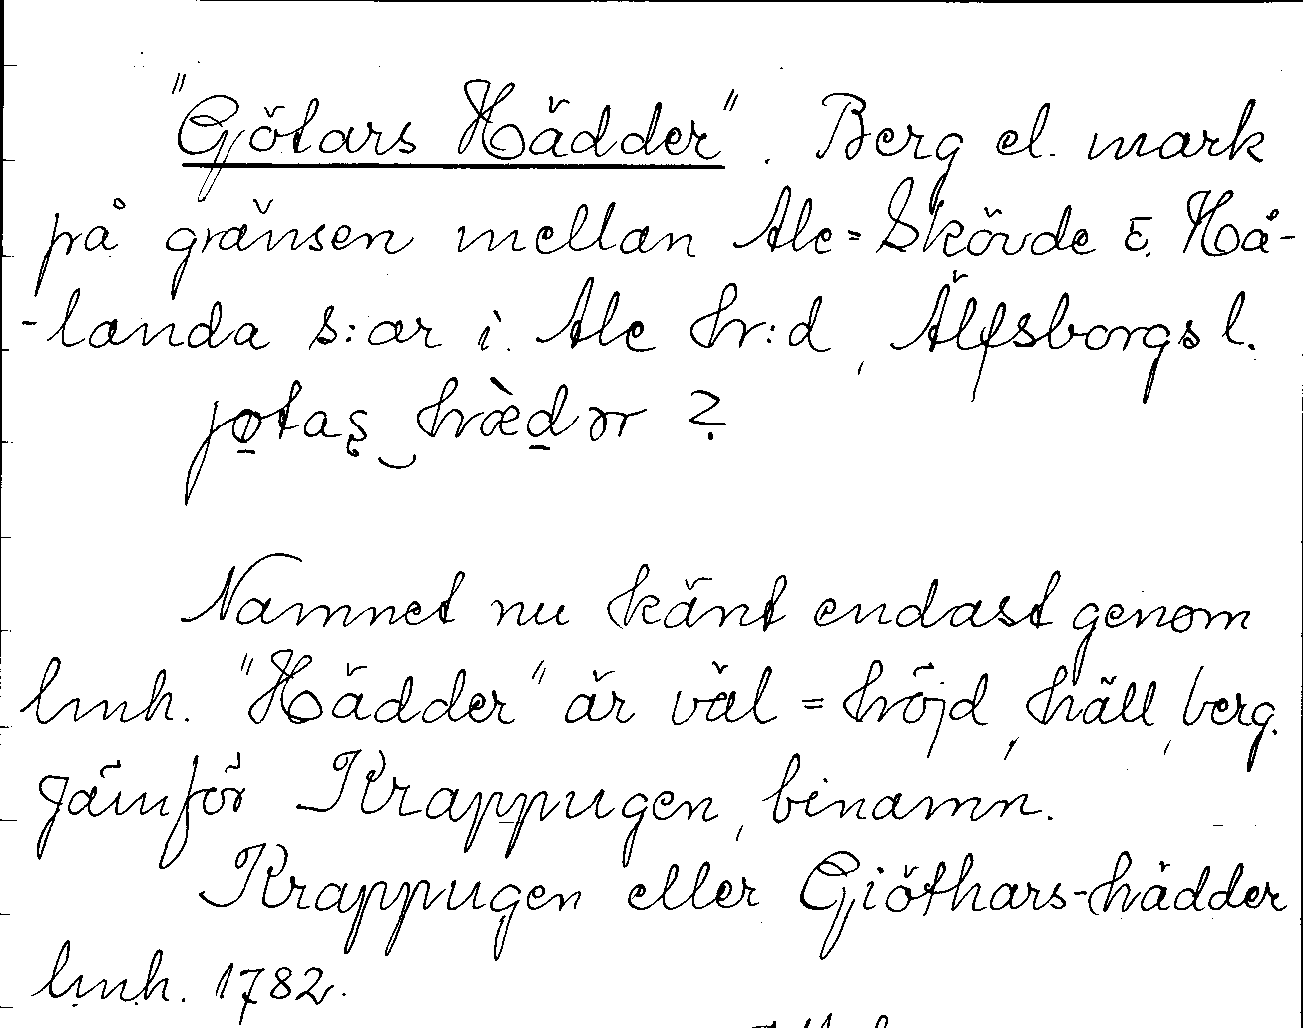 "Götars Hädder". Berg el. mark
på gränsen mellan Ale=Skövde o. Hå-
-landa s:ar i Ale hr:d, Älfsborgs l.
jøtas̨‿hæ̀dər ?
Namnet nu känt endast genom
lmh. "Hädder" är väl = höjd, häll, berg.
Jämför Krappugen, binamn.
Krappugen eller Giöthars-hädder
lmh. 1782.